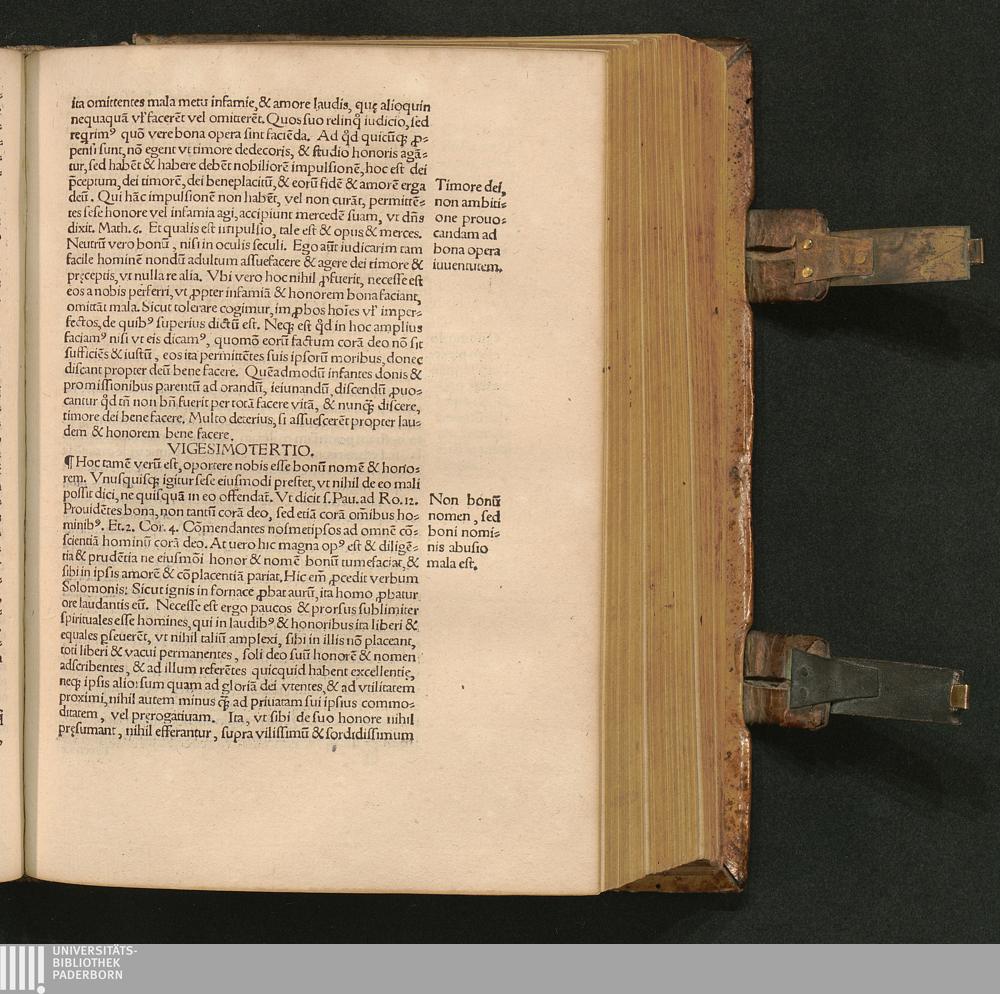 ita omittentes mala metu infamie, & amore laudis, quę alioquin
nequaquā vł facerēt vel omitterēt. Quos suo relinq̃ iudicio, sed
reqrimꝰ quō vere bona opera sint faciēda. Ad q̃d quicūq; ꝓ-
pensi sunt, nō egent vt timore dedecoris, & studio honoris agā-
tur, sed habēt & habere debēt nobiliorē impulsionē, hoc est dei
p̄ceptum, dei timorē, dei beneplacitū, & eorū fidē & amorē erga
deū. Qui hāc impulsionē non habēt, vel non curāt, permittē-
tes sese honore vel infamia agi, accipiunt mercedē suam, vt dñs
dixit. Math. 6. Et qualis est impulsio, tale est & opus & merces.
Neutrū vero bonū, nisi in oculis seculi. Ego aūt iudicarim tam
facile hominē nondū adultum assuefacere & agere dei timore &
pręceptis, vt nulla re alia. Vbi vero hoc nihil ꝓfuerit, necesse est
eos a nobis perferri, vt ꝓpter infamiā & honorem bona faciant,
omittāt mala. Sicut tolerare cogimur, imꝓbos hoīes vł imper-
fectos, de quibꝰ superius dictū est. Neq; est q̃d in hoc amplius
faciamꝰ nisi vt eis dicamꝰ, quomō eorū factum corā deo nō sit
sufficiēs & iustū, eos ita permittētes suis ipsorū moribus, donec
discant propter deū bene facere. Quēadmodū infantes donis &
promissionibus parentū ad orandū, ieiunandū, discendū ꝓuo-
cantur q̃d tñ non bñ fuerit per totā facere vitā, & nunq̃; discere,
timore dei bene facere. Multo deterius, si assuescerēt propter lau-
dem & honorem bene facere.
VIGESIMOTERTIO.
¶ Hoc tamē verū est, oportere nobis esse bonū nomē & hono-
rem. Vnusquisq; igitur sese eiusmodi prestet, vt nihil de eo mali
possit dici, ne quisquā in eo offendat. Vt dicit s. Pau. ad Ro. 12.
Prouidētes bona, non tantū corā deo, sed etiā corā om̄ibus ho-
minibꝰ. Et. 2. Cor. 4. Cōmendantes nosmetipsos ad omnē cō-
scientiā hominū corā deo. At vero hic magna opꝰ est & diligē-
tia & prudētia ne eiusmōi honor & nomē bonū tumefaciat, &
sibi in ipsis amorē & cōplacentiā pariat. Hic em̄ ꝓcedit verbum
Solomonis: Sicut ignis in fornace ꝓbat aurū, ita homo ꝓbatur
ore laudantis eū. Necesse est ergo paucos & prorsus sublimiter
spirituales esse homines, qui in laudibꝰ & honoribus ita liberi &
equales ꝑseuerēt, vt nihil taliū amplexi, sibi in illis nō placeant,
toti liberi & vacui permanentes, soli deo suū honorē & nomen
adscribentes, & ad illum referētes quicquid habent excellentię,
neq; ipsis aliorsum quam ad gloriā dei vtentes, & ad vtilitatem
proximi, nihil autem minus q̃; ad priuatam sui ipsius commo-
ditatem, vel prerogatiuam. Ita, vt sibi de suo honore nihil
pręsumant, nihil efferantur, supra vilissimū & sordidissimum
Timore dei,
non ambiti-
one prouo-
candam ad
bona opera
iuuentutem.
Non bonū
nomen, sed
boni nomi-
nis abusio
mala est.
UNIVERSITÄTS-
BIBLIOTHEK
PADERBORN